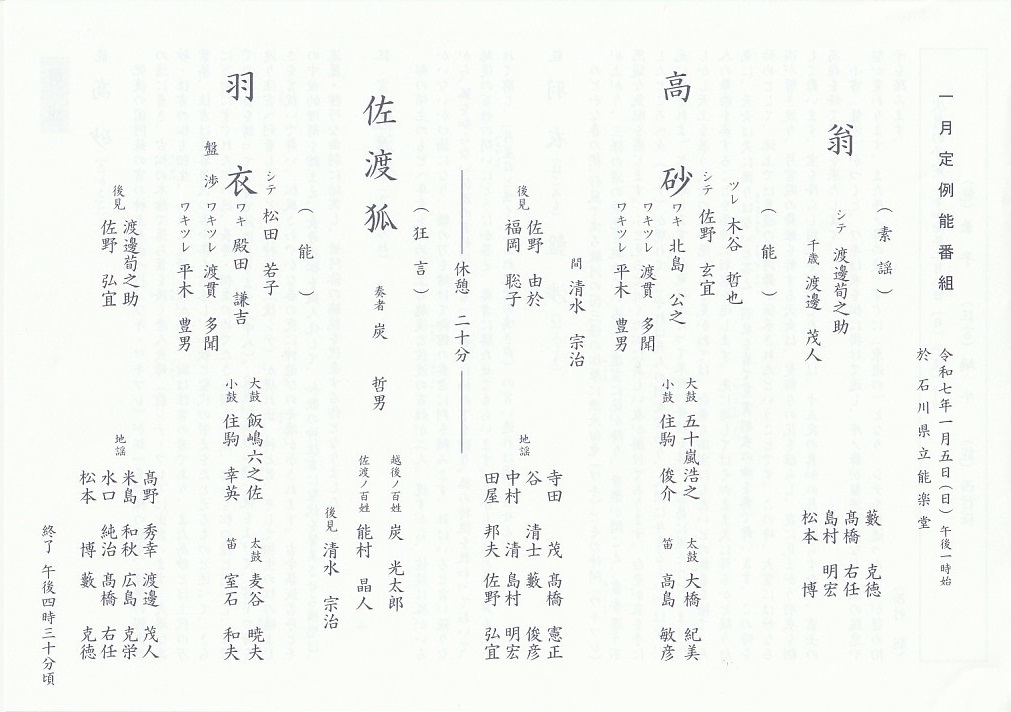 一月定例能番組
令和七年一月五日（日）午後一時始
於 石川県立能楽堂
（素謡）
翁
シテ 渡邊荀之助
千歳 渡邊 茂人
藪 克徳
髙橋 右任
島村 明宏
松本 博
（能）
高砂
ツレ 木谷 哲也
シテ 佐野 玄宜
ワキ 北島 公之
ワキツレ 渡貫 多聞
ワキツレ 平木 豊男
大鼓 五十嵐浩之
小鼓 住駒 俊介
太鼓 大橋 紀美
笛 高島 敏彦
間 清水 宗治
後見 佐野 由於
福岡 聡子
地謡
寺田 茂 髙橋 憲正
谷 清士 藪 俊彦
中村 清 島村 明宏
田屋 邦夫 佐野 弘宜
休憩 二十分
（狂言）
佐渡狐
奏者 炭 哲男
越後ノ百姓 炭 光太郎
佐渡ノ百姓 能村 晶人
後見 清水 宗治
（能）
羽衣
盤渉
シテ 松田 若子
ワキ 殿田 謙吉
ワキツレ 渡貫 多聞
ワキツレ 平木 豊男
大鼓 飯嶋六之佐
小鼓 住駒 幸英
太鼓 麦谷 暁夫
笛 室石 和夫
後見 渡邊荀之助
佐野 弘宜
地謡
髙野 秀幸 渡邊 茂人
米島 和秋 広島 克栄
水口 純治 髙橋 右任
松本 博 藪 克徳
終了 午後四時三十分頃